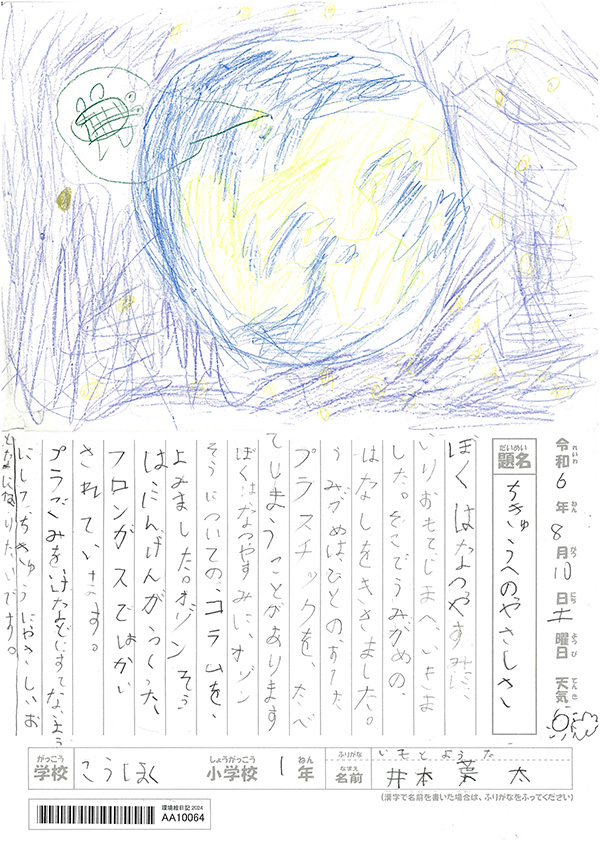 れいわ ねん がつ にち ようび てんき
令和6年8月10日土曜日 天気
だいめい
題名 ちきゅうへのやさしさ
ぼくはなつやすみに、
いりおもてじまへいきま
した。そこでうみがめの、
はなしをききました。
うみがめは、ひとのすてた
プラスチックを、たべ
てしまうことがあります
ぼくはなつやすみに、オゾン
そうについての、コラムを、
よみました。オゾンそう
は、にんげんがつくった、
フロンガスではかい
されています。
プラごみを などにすてないよう
にして、ちきゅうにやさしいお
となになりたいです。
がっこう しょうがっこう ねん ふりがな いもとようた
学校 こうほく 小学校 1年 なまえ 名前 井本 葉太
(漢字で名前を書いた場合は、ふりがなをふってください)
環境絵日記2024
AA10064